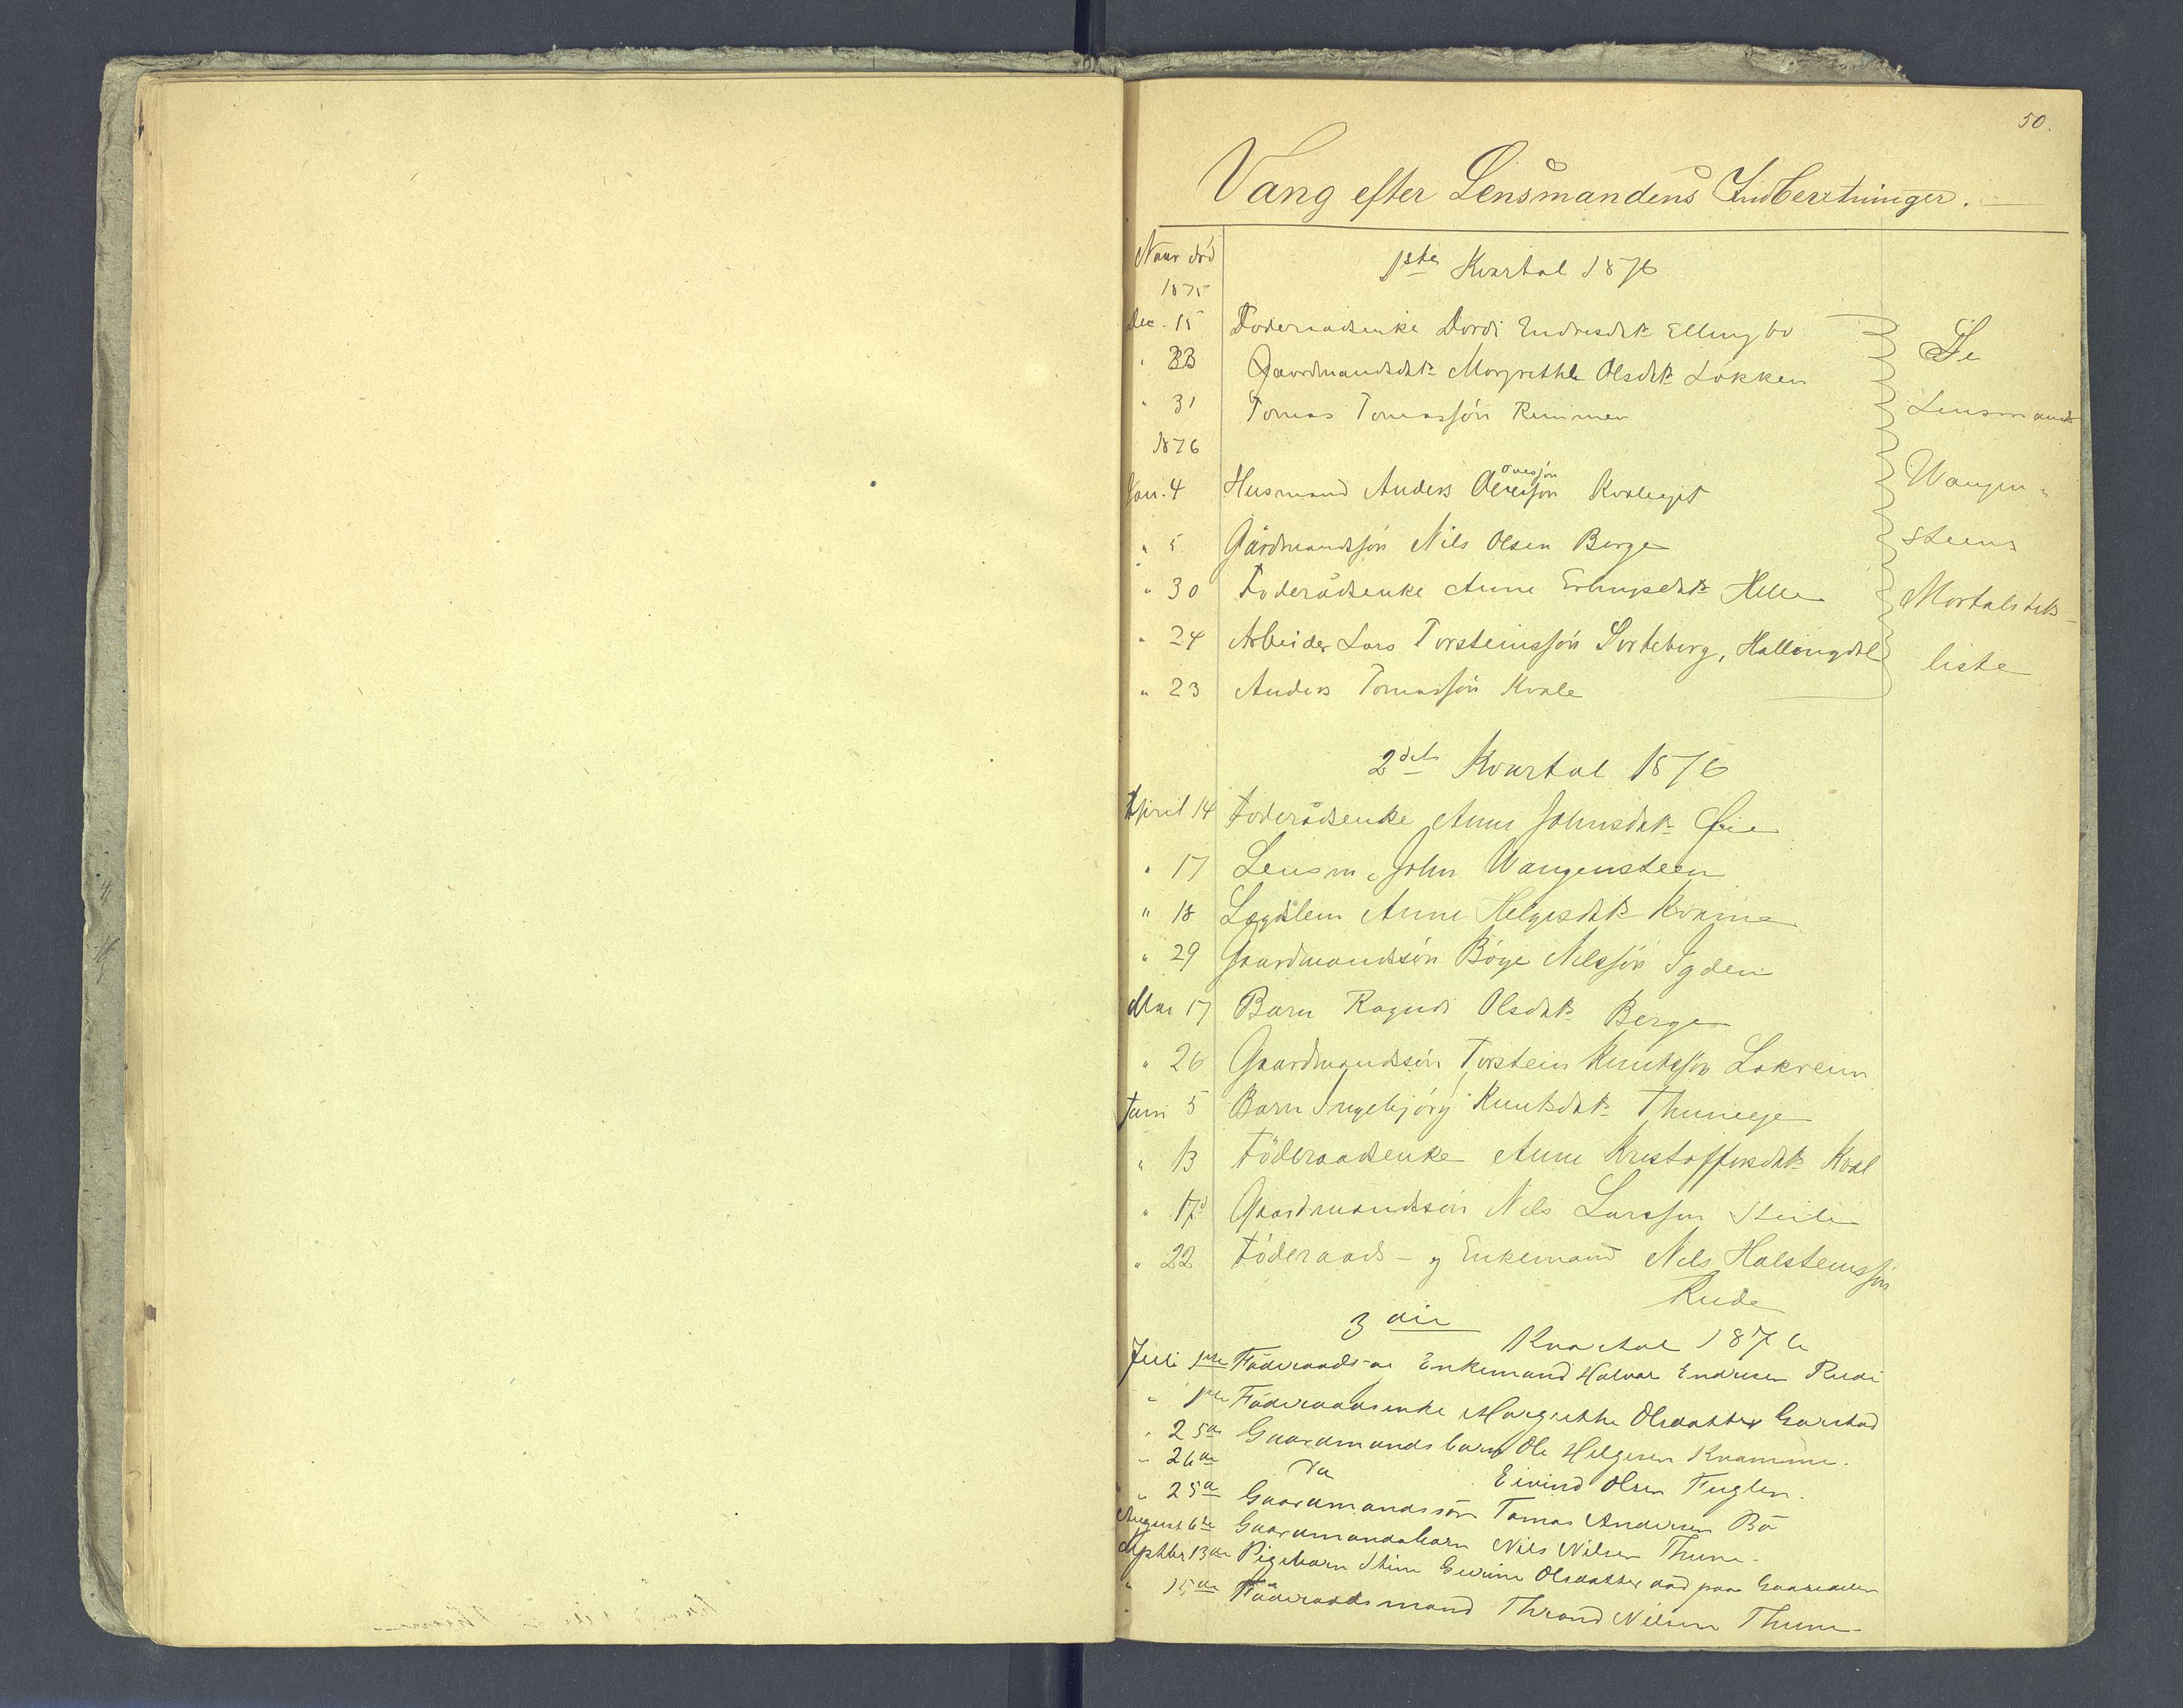 50.
Vang efter Lensmandens Indberetninger.
Naar död
1ste Kvartal 1876
1875
Dec. 15 Foderaadsenke Dordi Endresdtr Ellingbö
" 23 Gaardmandsdtr Margrethe Olsdtr Løkken
" 31 Tomas Tomassön Remmen
1876
Jan. 4 Husmand Anders Ovessön Kvaleyet
" 5 Gårdmandssön Nils Olsen Berge
" 30 Foderådsenke Anne Erlingsdtr Helle
" 24 Arbeider Lars Torsteinssön Sorteberg, Hallingdal
" 23 Anders Tomassön Kvale
Se
Lensmand
Wangen-
steens
Mortalitets-
liste
2det Kvartal 1876
April 14 Foderådsenke Anne Johnsdtr Øie
" 17 Lensm. John Wangensteen
" 18 Lægdslem Anne Helgesdtr Kvame
" 29 Gaardmandssön Böye Nilssön Igden
Mai 17 Barn Ragndi Olsdtr Berge
" 26 Gaardmandssön Torstein Knutssön Lokreim
Juni 5 Barn Ingebjörg Knutsdtr Thuneeje
" 13 Föderaadsenke Anne Kristoffersdtr Kval
" 17d Gaardmandssön Nils Larsson Steile
" 22 Föderaads- og Enkemand Nils Halsteinssön
Rude
3die Kvartal 1876
Juli 1ste Föderaads- og Enkemand Halvor Endresen Rudi
" 1ste Föderaadsenke Margrethe Olsdatter Garstad
" 25de Gaardmandsbarn Ole Helgesen Kvamme.
" 26de Do Eivind Olsen Fuglen.
" 25de Gaardmandssön Tomas Andersen Bö
August 6te Gaardmandsbarn Nils Nilsen Thune.
Septbr 13de Pigebarn Stine Gurine Olsdatter död paa Gaardalen
" 15de Föderaadsmand Thrond Nilsen Thune.